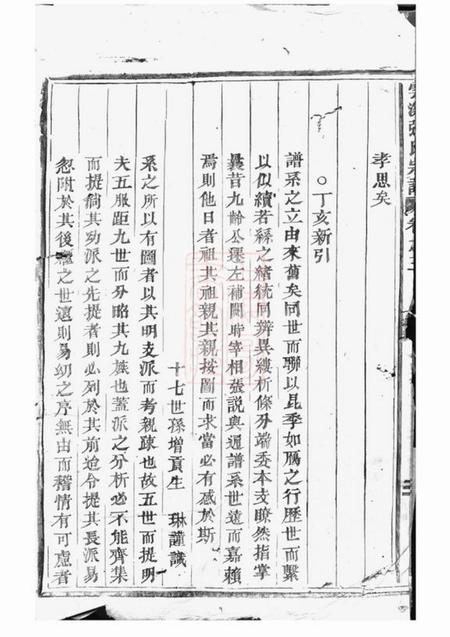 張氏宗譜
孝思矣
○丁亥新引
譜系之立由來舊矣同世而聯以昆季如鴈之行歷世而繫
以似續若繇之緒統同辨異縷析條分端委本支瞭然指掌
彝昔九齡公遷左補闕時宰相張說與通譜系世遠而嘉賴
焉則他日者祖其祖親其親按圖而求當必有感於斯
十七世孫增貢生 琳謹識
系之所以有圖者以其明支派而考親疎也故五世而提明
夫五服距九世而分昭其九族也蓋派之分析必不能齊集
而提倘其幼派之先提者則必列於其前迨令提其長派易
忽附於其後繼之世遠則易幼之序無由而稽情有可慮者